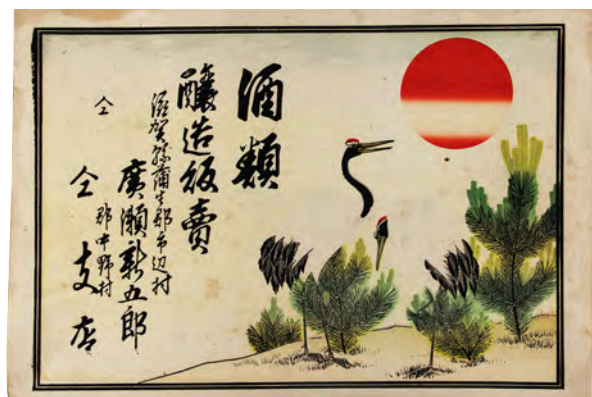 酒類
釀造販賣
滋賀縣蒲生郡市辺村
廣瀬新五郎
仝 郡中野村
仝支店